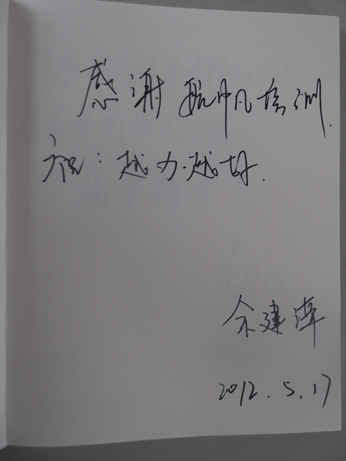 感谢 航帆培训.
祝：越办越好.
余建
2012.5.17